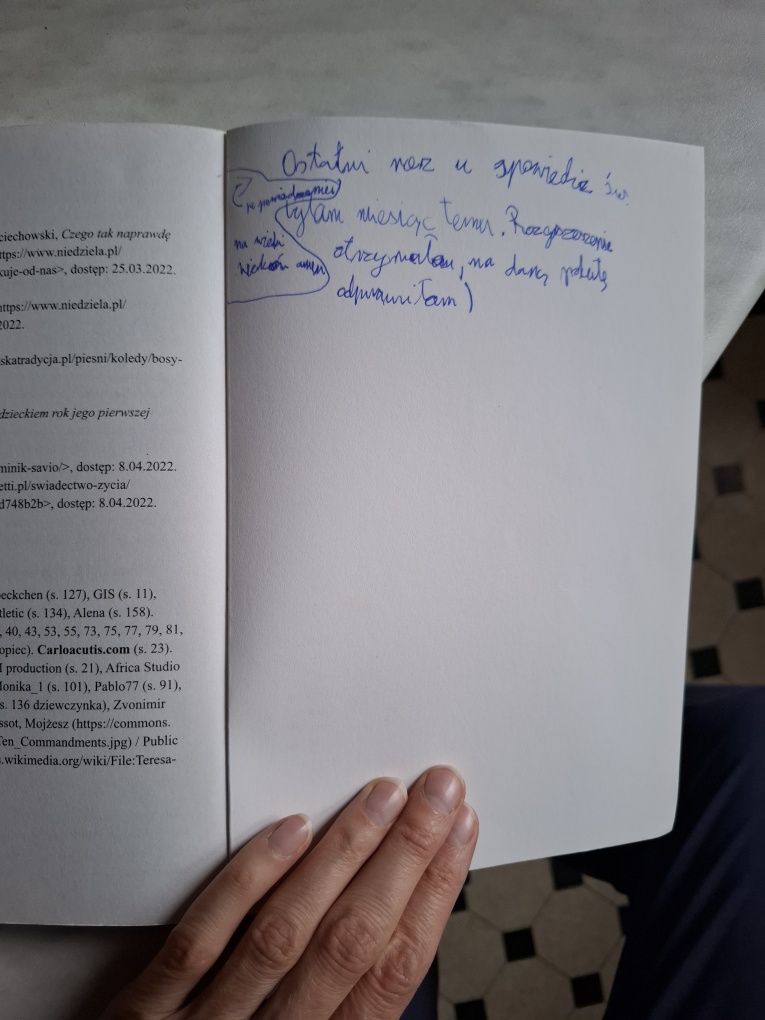 ciechowski, Czego tak naprawdę
https://www.niedziela.pl/
kuje-od-nas>, dostęp: 25.03.2022.
https://www.niedziela.pl/
2022.
skatradycja.pl/piesni/koledy/bosy-
dzieckiem rok jego pierwszej
minik-savio/>, dostęp: 8.04.2022.
etti.pl/swiadectwo-zycia/
d748b2b>, dostęp: 8.04.2022.
eckchen (s. 127), GIS (s. 11),
tletic (s. 134), Alena (s. 158).
, 40, 43, 53, 55, 73, 75, 77, 79, 81,
opiec). Carloacutis.com (s. 23).
I production (s. 21), Africa Studio
Monika_1 (s. 101), Pablo77 (s. 91),
s. 136 dziewczynka), Zvonimir
ssot, Mojżesz (https://commons.
Ten_Commandments.jpg) / Public
s.wikimedia.org/wiki/File:Teresa-
Ostatni raz u spowiedzi św.
byłam miesiąc temu. Rozgrzeszenie
otrzymałam, na daną pokutę
odprawiłam)
na wieki
wieków amen